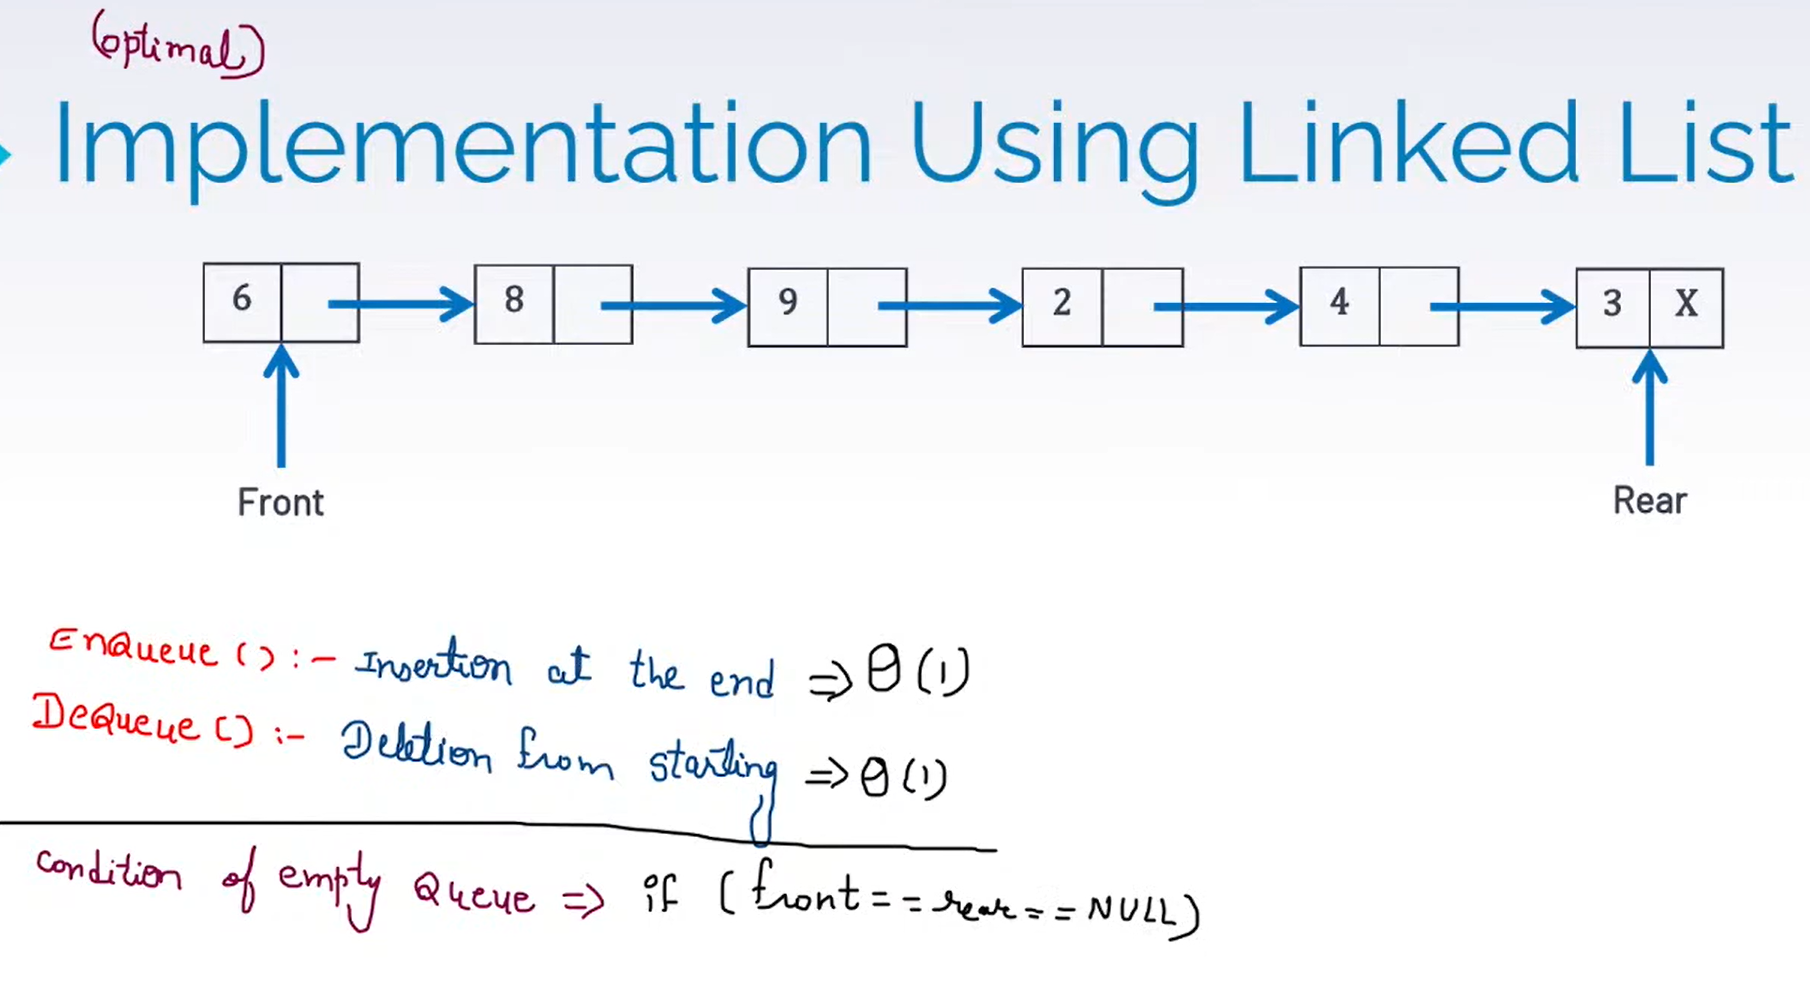 (optimal)
Implementation Using Linked List
6 8 9 2 4 3 X
Front Rear
EnQueue () :- Insertion at the end ⇒ θ(1)
DeQueue () :- Deletion from starting ⇒ θ(1)
Condition of empty Queue ⇒ if (front==rear==NULL)